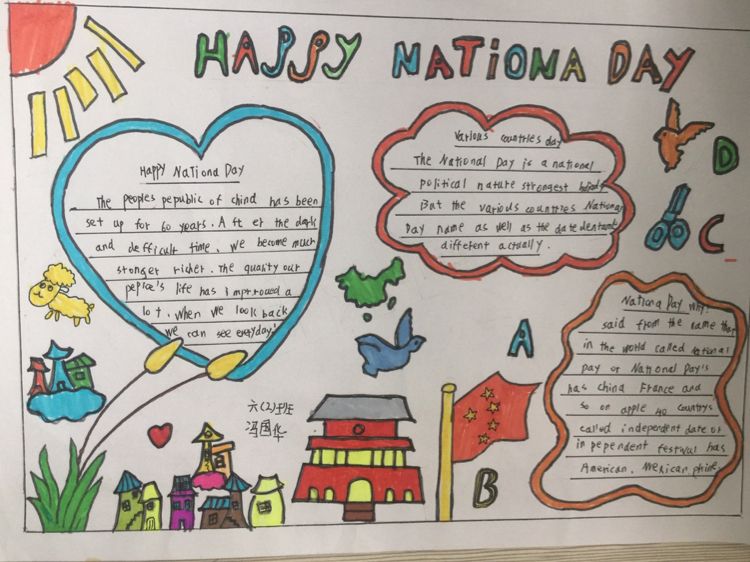 HAPPY NATIONA DAY
Happy Nationa Day
The peoples pepublic of china has been
set up for 60 years. Aft er the dark
and defficult time, we become much
stronger richer. The quality our
pepice's life has improued a
lot. when we look back
we can see everyday!
Various countries day
The National Day is a national
political nature strongest
But the various countries National
Day name as well as the date
different actually.
D
C
A
B
Nationa Day why?
said from the name that
in the world called national
pay or National Day's
has china France and
so on apple 40 countrys
called independent date or
in pependent festival has
American. Mexican
六(2)班
冯国华